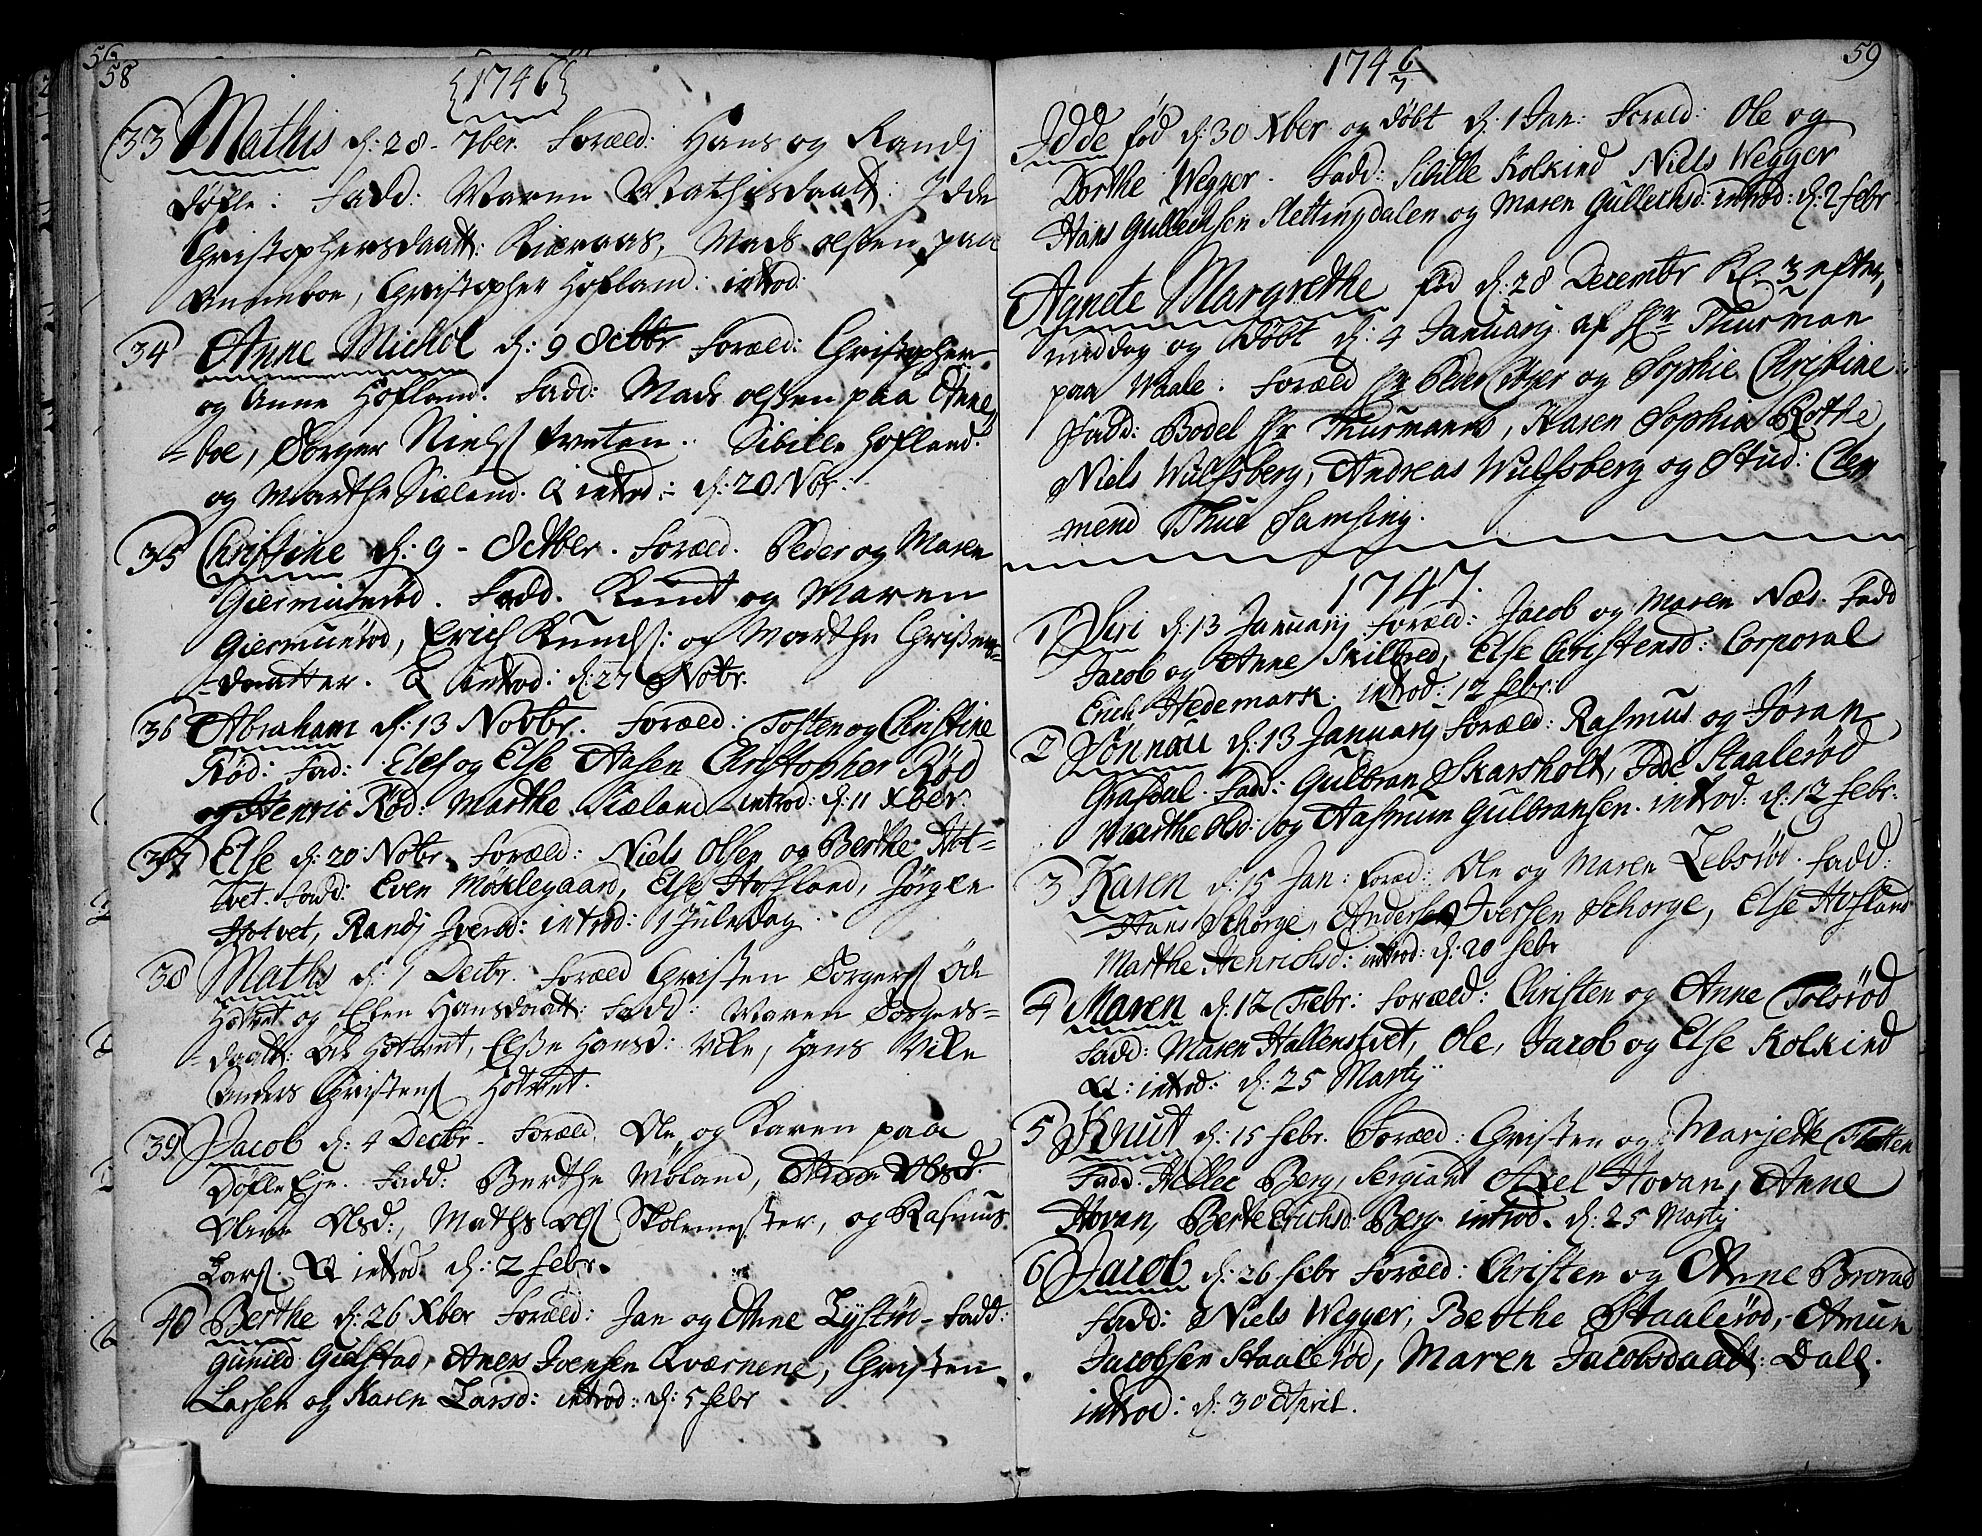 56
58
{1746}
33 Mathis d: 28 - 7ber. Foræld: Hans og Randj
Døfle: Fadd: Maren Mathisdaatt: Idde
Christophersdaatt: Kieraas, Mads olssen paa
Anneboe, Christopher Hofland: introd:
34 Anne Michol d: 9 Octbr Foræld: Christopher
og Anne Hofland. Fadd: Mads olssen paa Anne,
-boe, Børger Niels Tveten. Sibille Hofland.
og Marthe Sieland. Q introd: d: 20 Nbr:
35 Christine d: 9 - Octber. Foræld. Peder og Maren
Giermunrød. Fadd. Knud og Maren
Giermunrød, Erich Knuds: og Marthe Christens-
-daatter. Q introd: d: 27 Nobr.
36 Abraham d: 13 Novbr. Foræld: Tosten og Christine
Rød: Fad: Elef og Else Aasen Christopher Rød
og Henric Rød: Marthe Sieland introd: d: 11 Xber.
37 Else d: 20 Nobr. Foræld: Niels Olsen og Berthe Hot-
tvet. Fadd: Even Møklegaard, Else Hofland, Jørgen
Hotvet, Randj Iversd: introd: 1 Juledag
38 Maths d: 1 Decbr. Foræld Christen Børgers Øde
Hotvet og Elen Hansdaatt: Fadd: Maren Børgers-
-daatt: Øde Hotvet, Elsse Hansd: Vke, Hans Vke
Anders Christens Hotvet.
39 Jacob d: 4 Decbr. Foræld. Ole og Karen paa
Døfle Eje. Fadd: Berthe Møland, Anne Olsd:
Olsd:, Maths Ols Skolemester, og Rasmus
Lars: Q introd. d: 2 febr.
40 Berthe d: 26 Xber Foræld: Jan og Anne Lystød - Fadd:
Gunild Gielstad, Aners Ivensen Qværnene, Christen
Larsen og Karen Larsd: introd: d: 5 febr
59
174 6/7
Idde fød d: 30 Xber og døbt d: 1 Jan: Foræld: Ole og
Dorthe Wegger. Fadd: Sibille Kolkind Niels Wegger
Hans Gullechsen Slettingdalen og Maren Gullechsd: introd: d: 2 febr
Agnete Margrethe fød d: 28 Decembr Kl. 3 efter,
middag og døbt d: 4 Januarij af Hr Thurman
paa Waale. Foræld Hr Peder og Sophie Christine
Fadd: Bodel Hr Thurmans, Karen Sophia Rotte,
Niels Wulfsberg, Andreas Wulfsberg og Stud: Clem
-mend Thue Samsing.
1747.
1 Siri d: 13 Januarij Foræld: Jacob og Maren Næs. Fadd
Jacob og Anne Skilbred, Else Christensd: Corporal
Erich Hedemark. introd: 12 febr:
2 Jønnau d: 13 Januarij Foræld: Rasmus og Jøran
Grafdal. Fadd: Gulbran Skarsholt, Idde Staalerød
Marthe Olsd: og Aasmun Gulbransen. introd: d: 12 febr.
3 Karen d: 15 Jan: foræd: Ole og Maren Lebsrød. Fadd:
Hans Schorge, Anders Iversen Schorge, Else Hofland
Marthe Henrichsd: introd: d: 20 febr
4 Maren d: 12 Febr: Foræld: Christen og Anne Tolsrød
Fadd: Maren Hallenstvet, Ole, Jacob og Else Kolkind
Q: introd: d: 25 Martij
5 Knut d: 15 febr. Foræld: Christen og Marjete Flatten
Fadd: Hellec Berg, Sergiant Axel Hovan, Anne
Hovan, Berte Erichsd: Berg. introd. d: 25 Martij
6 Jacob d: 26 febr Foræld: Christen og Anne Brorud
Fadd: Niels Wegger, Berthe Staalerød, Amun
Jacobsen Staalerød, Maren Jacobsdaatt: Dall.
introd: d: 30 April.